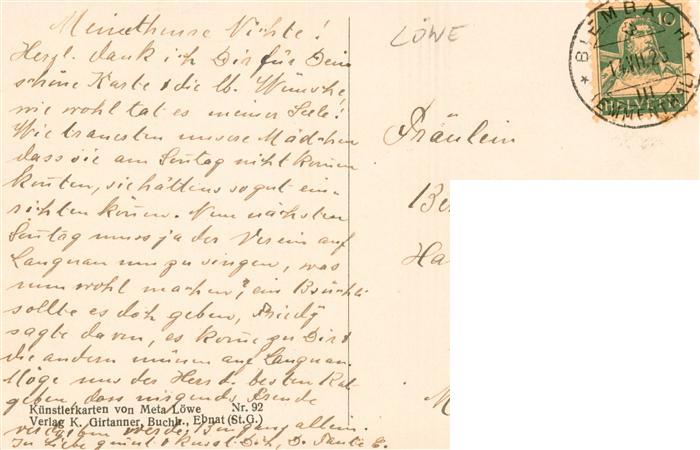 Meine theure Nichte!
Herzl. dank ich Dir für Dein
schöne Karte & die lb. Wünsche
wie wohl tat es meiner Seele!
Wie trauerten unsere Mädchen
dass sie am Sontag niht komen
konten, sie hättens so gut ein-
richten könen. Nun nächsten
Sontag muss ja der Verein auf
Langnau um zu singen, was
nun wohl machen?, ein
sollte es doh geben, Friedy
sagte davon, es kome zu Dir &
die andern müsen auf Langnau.
Möge uns der Herr d. besten Rat
geben, dass nirgends Freude
verdorben werde. Bin ganz allein.
In Liebe grüsst & küsst Dih, D. Tante E.
Künstlerkarten von Meta Löwe Nr. 92
Verlag K. Girtanner, Buchh., Ebnat (St. G.)
LÖWE
BIEMBACH
VII. 25
III
(EMMENTHAL)
HELVETIA
Fräulein
Be
Ha
M